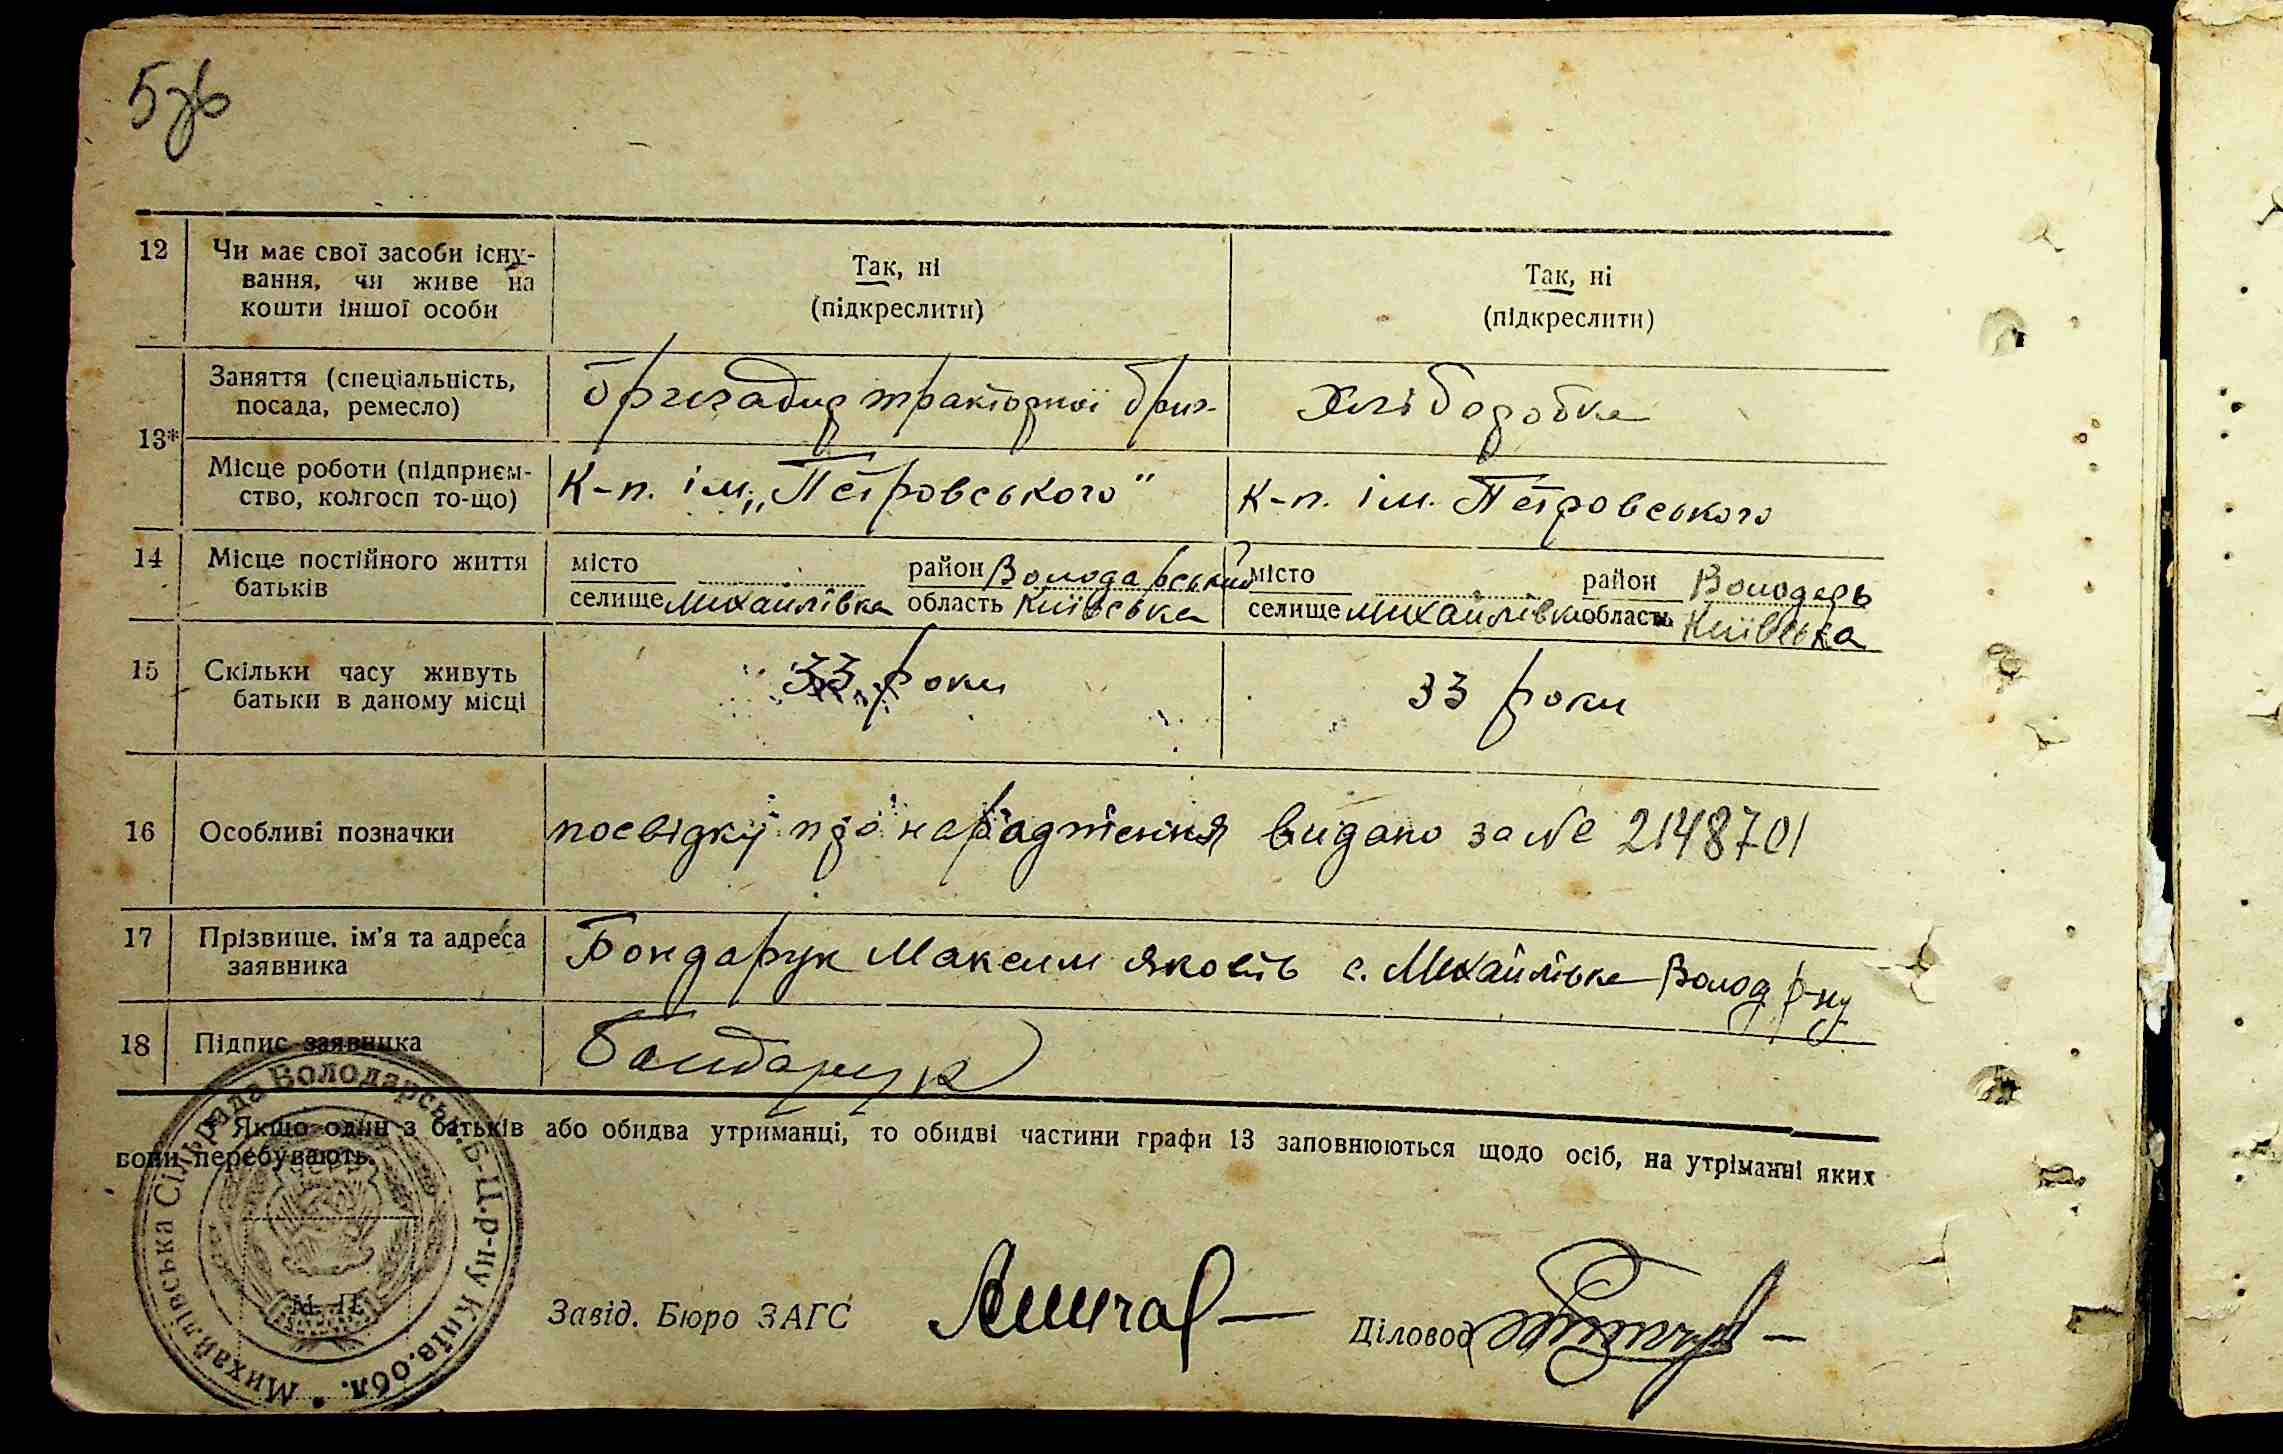 5зв
12 Чи має свої засоби існу- Так, ні Так, ні
вання, чи живе на (підкреслити) (підкреслити)
кошти іншої особи
Заняття (спеціальність, бригадир тракторної бриг. Хліборобка
посада, ремесло)
13*
Місце роботи (підприєм- К-п. ім. „Петровського" К-п. ім. Петровського
ство, колгосп то-що)
14 Місце постійного життя місто район Володарський місто район Володарь
батьків селище Михайлівка область Київська селище Михайлівка область Київська
15 Скільки часу живуть 33 роки 33 роки
батьки в даному місці
16 Особливі позначки посвідку про народження видано за № 2148701
17 Прізвище, ім'я та адреса Бондарук Максим Яковів с. Михайлівка Волод р-ну
заявника
18 Підпис заявника Бондарук
* Якщо один з батьків або обидва утриманці, то обидві частини графи 13 заповнюються щодо осіб, на утріманні яких
вони перебувають.
Михайлівська Сільрада Володарськ. Б-Ц. р-ну Київ. обл.
М. П.
Завід. Бюро ЗАГС Діловод